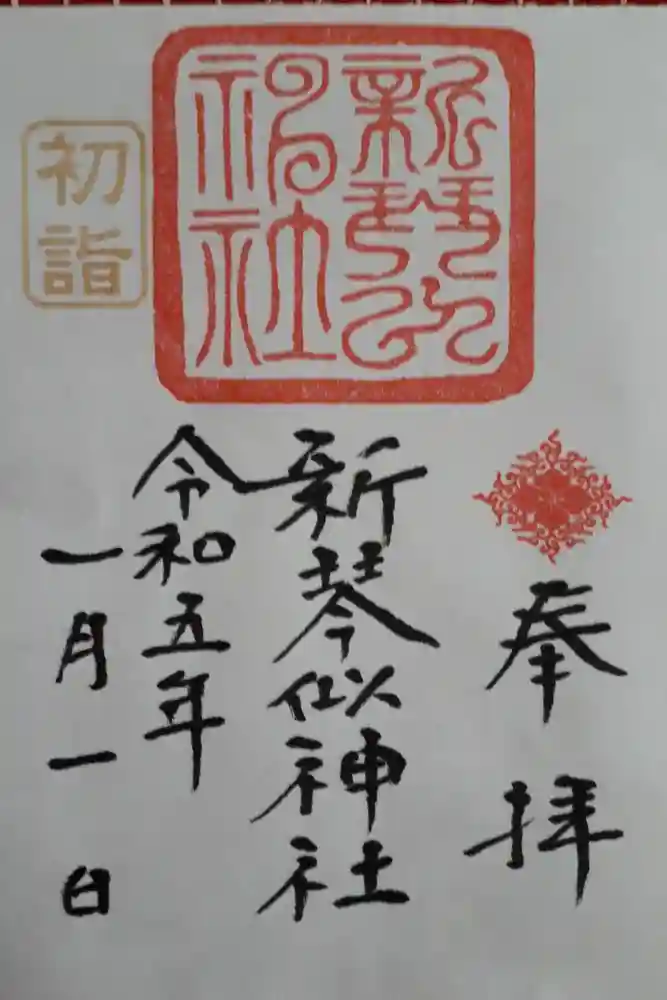 奉拝
新琴似
神社
新琴似神社
初詣
令和五年
一月一日